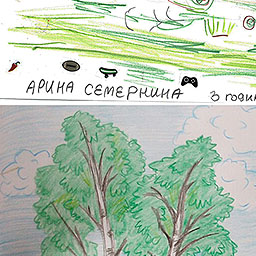 АРИНА СЕМЕРНИНА 3 годин